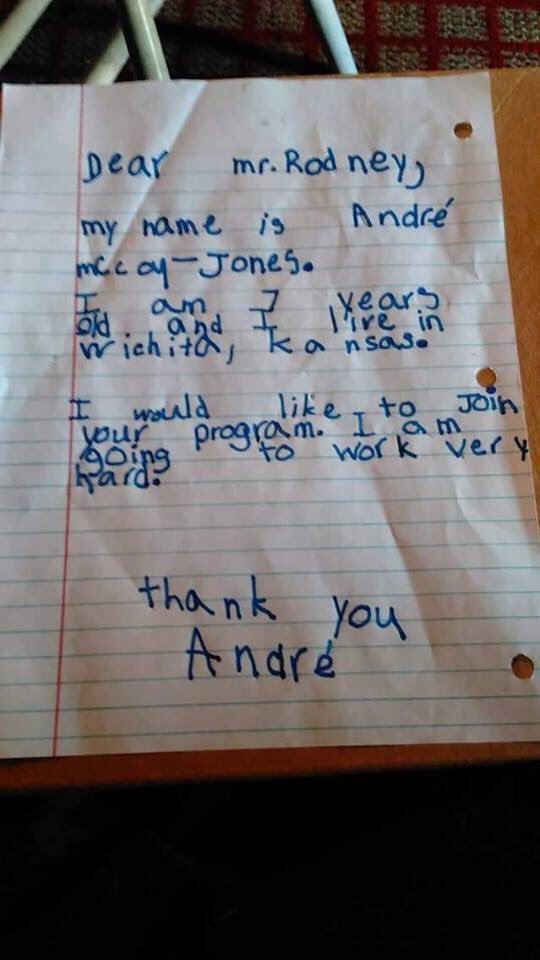 Dear mr. Rodney,
my name is André
mccoy-Jones.
I am 7 years
old and I live in
Wichita, Kansas.
I would like to Join
your program. I am
going to work very
hard.
thank you
André